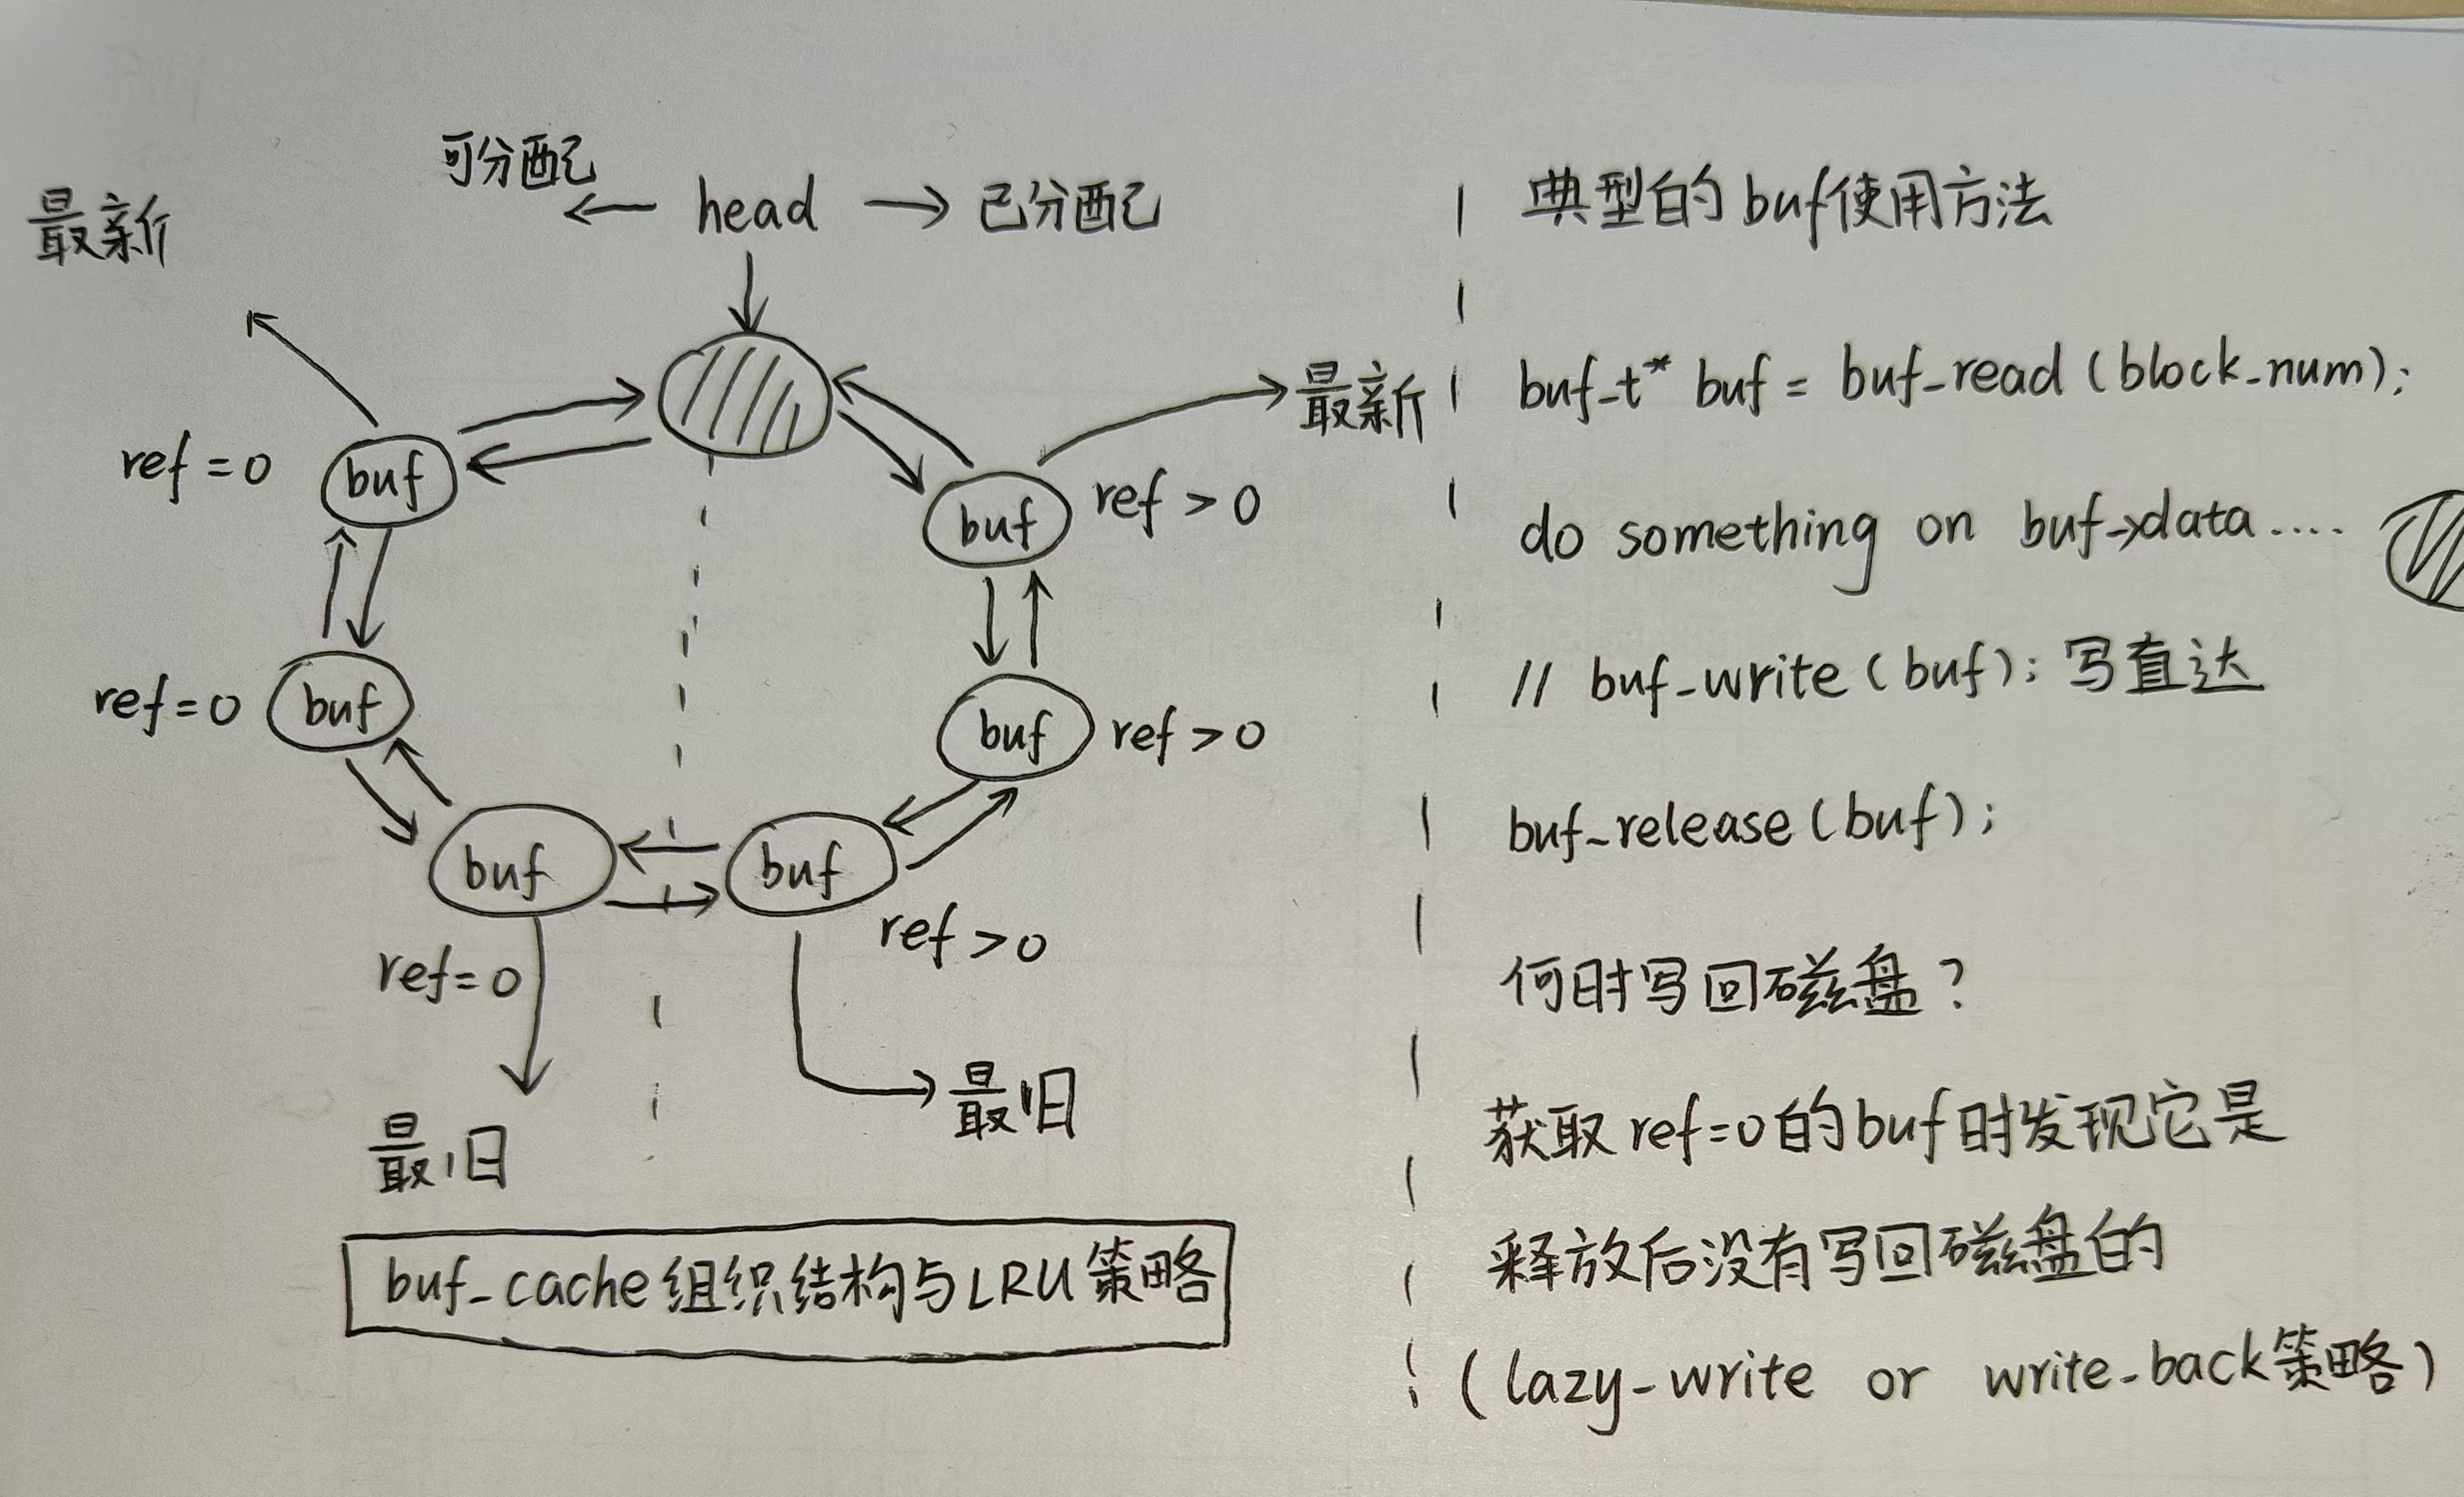 可分配
← head → 已分配
最新
最新
ref = 0
buf
buf
ref > 0
ref = 0
buf
buf
ref > 0
buf
buf
ref = 0
ref > 0
最旧
最旧
buf_cache组织结构与LRU策略
典型的buf使用方法
buf_t* buf = buf_read (block_num);
do something on buf→data....
// buf_write (buf); 写直达
buf_release (buf);
何时写回磁盘?
获取ref=0的buf时发现它是
释放后没有写回磁盘的
(lazy_write or write_back策略)